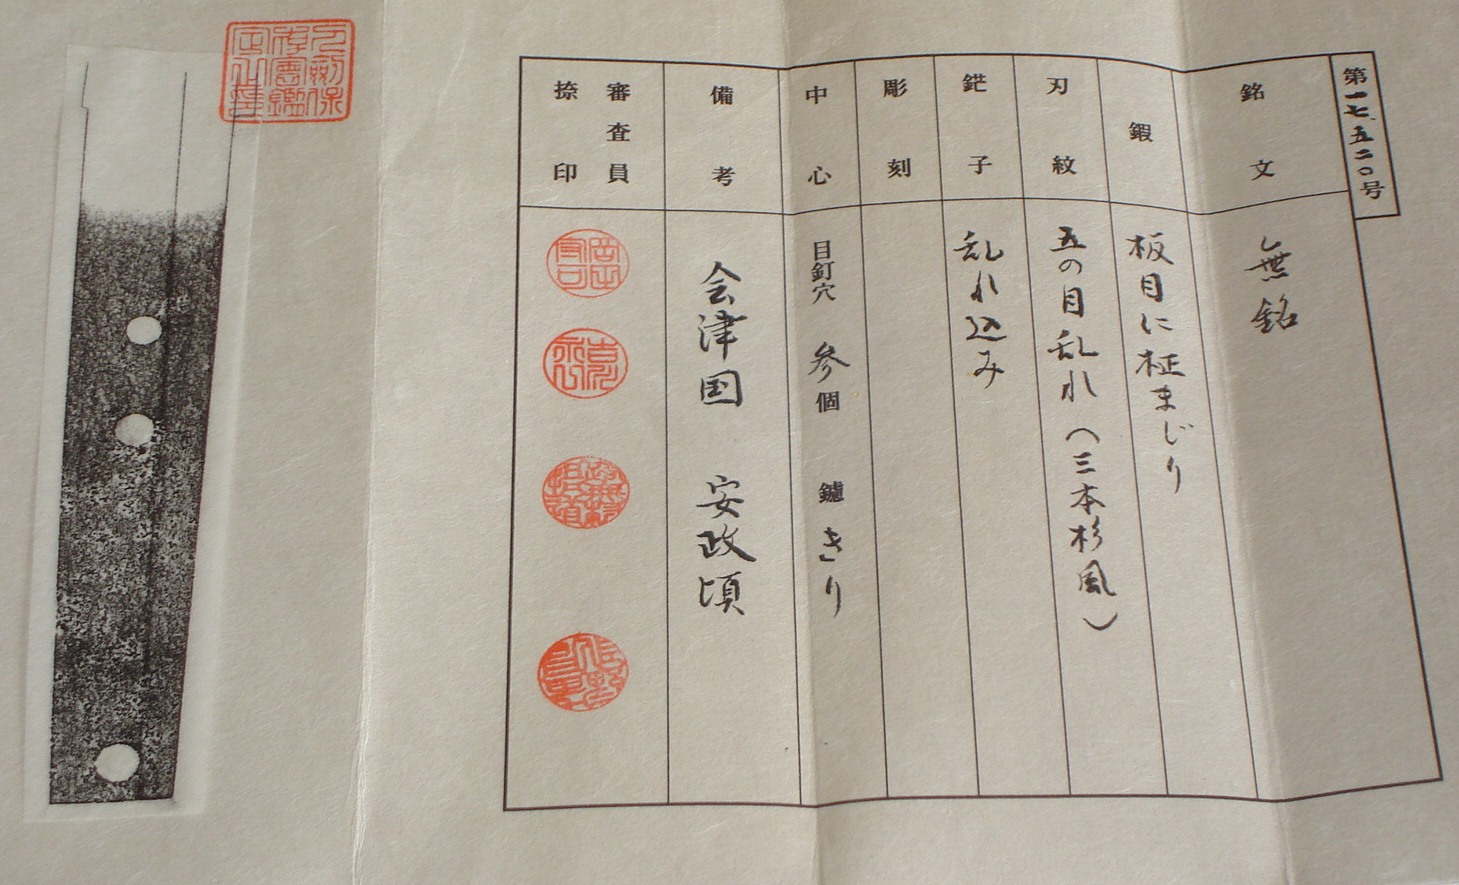 第一七、五二〇号
銘文
無銘
鍜
板目に柾まじり
刃紋
五の目乱れ（三本杉風）
鋩子
乱れ込み
彫刻
中心
目釘穴 参個 鑢 きり
備考
会津国 安政頃
審査員
捺印